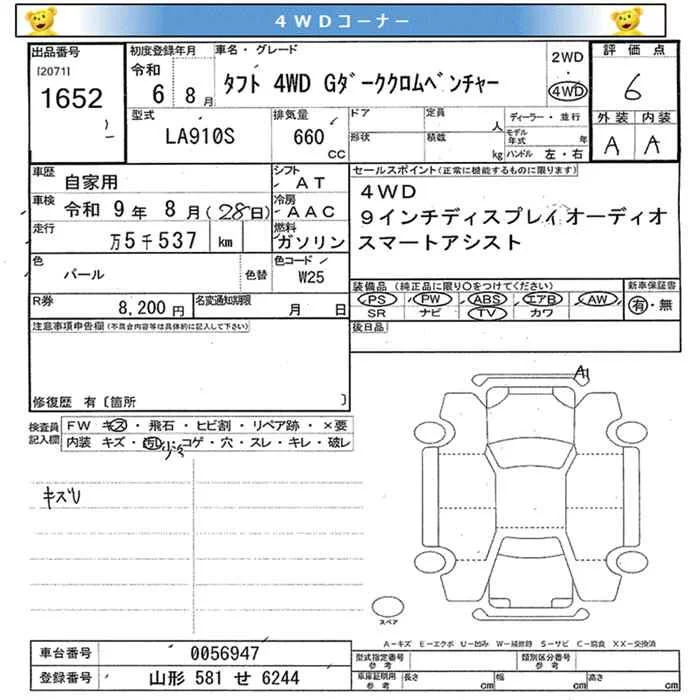 4WDコーナー
出品番号 初度登録年月 車名・グレード 2WD 評価点
[2071] 令和 ・
1652 6 8月 タフト 4WD Gダーククロムベンチャー 4WD 6
型式 排気量 ドア 定員 ディーラー・並行 外装 内装
LA910S 660 人 モデル年式 年 A A
CC 形状 積載 kg ハンドル 左・右
車歴 自家用 シフト AT セールスポイント(正常に機能するものに限ります)
車検 令和 9年 8月(28日) 冷房 AAC 4WD
走行 万5千537 km 燃料 ガソリン 9インチディスプレイオーディオ
スマートアシスト
色 パール 色替 色コード W25
装備品 (純正品に限り○をつけてください) 新車保証書
R券 8,200円 名変通知期限 月 日 PS PW ABS エアB AW 有・無
SR ナビ TV カワ
注意事項申告欄(不具合内容等は具体的に記入して下さい) 後日品
修復歴 有〔箇所 〕
検査員記入欄 FW キズ・飛石・ヒビ割・リペア跡・×要
内装 キズ・汚レ・コゲ・穴・スレ・キレ・破レ
少々
A1
キズU
スペア
A－キズ E－エクボ U－凹み W－補修跡 S－サビ C－腐食 XX－交換済
車台番号 0056947 型式指定番号 参考 類別区分番号 参考
登録番号 山形 581 せ 6244 車庫証明用 参考 長さ cm 幅 cm 高さ cm